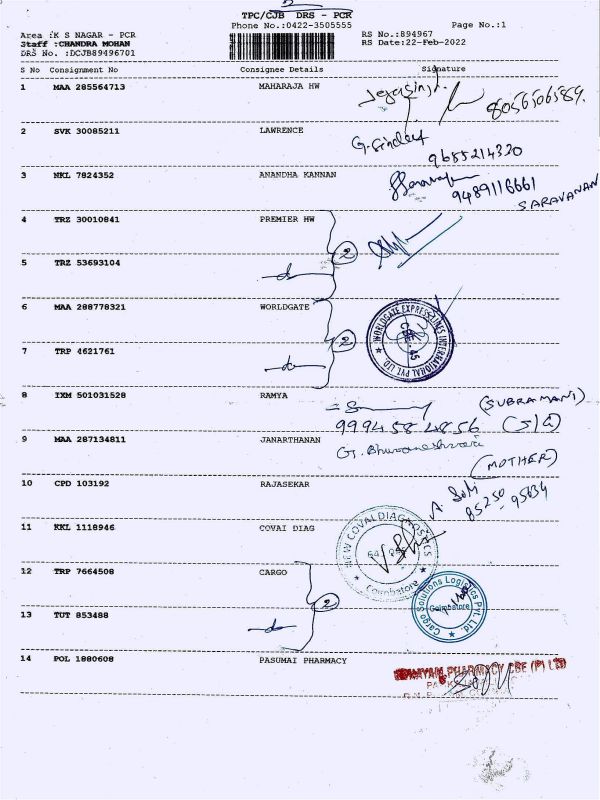 2
TPC/CJB DRS - PCR
Phone No.:0422-3505555
Page No.:1
Area :K S NAGAR - PCR
RS No.:894967
Staff :CHANDRA MOHAN
RS Date:22-Feb-2022
DRS No. :DCJB89496701
S No Consignment No Consignee Details Signature
1 MAA 285564713 MAHARAJA HW
8056506589.
2 SVK 30085211 LAWRENCE
9655214320
3 NKL 7824352 ANANDHA KANNAN
9489116661
SARAVANAN
4 TRZ 30010841 PREMIER HW
2
5 TRZ 53693104
6 MAA 288778321 WORLDGATE
WORLDGATE EXPRESS LINES INTERNATIONAL PVT. LTD.
CBE-45
2
7 TRP 4621761
8 IXM 501031528 RAMYA
(SUBRAMANI)
9994584856
9 MAA 287134811 JANARTHANAN
G. Bhuvaneshwari
(MOTHER)
10 CPD 103192 RAJASEKAR
85250-95634
11 KKL 1118946 COVAI DIAG
NEW COVAI DIAGNOSTICS
Coimbatore
12 TRP 7664508 CARGO
2
Cargo Solutions Logistics Pvt. Ltd.
Coimbatore
13 TUT 853488
14 POL 1880608 PASUMAI PHARMACY
PHARMACY CBE (P) LTD